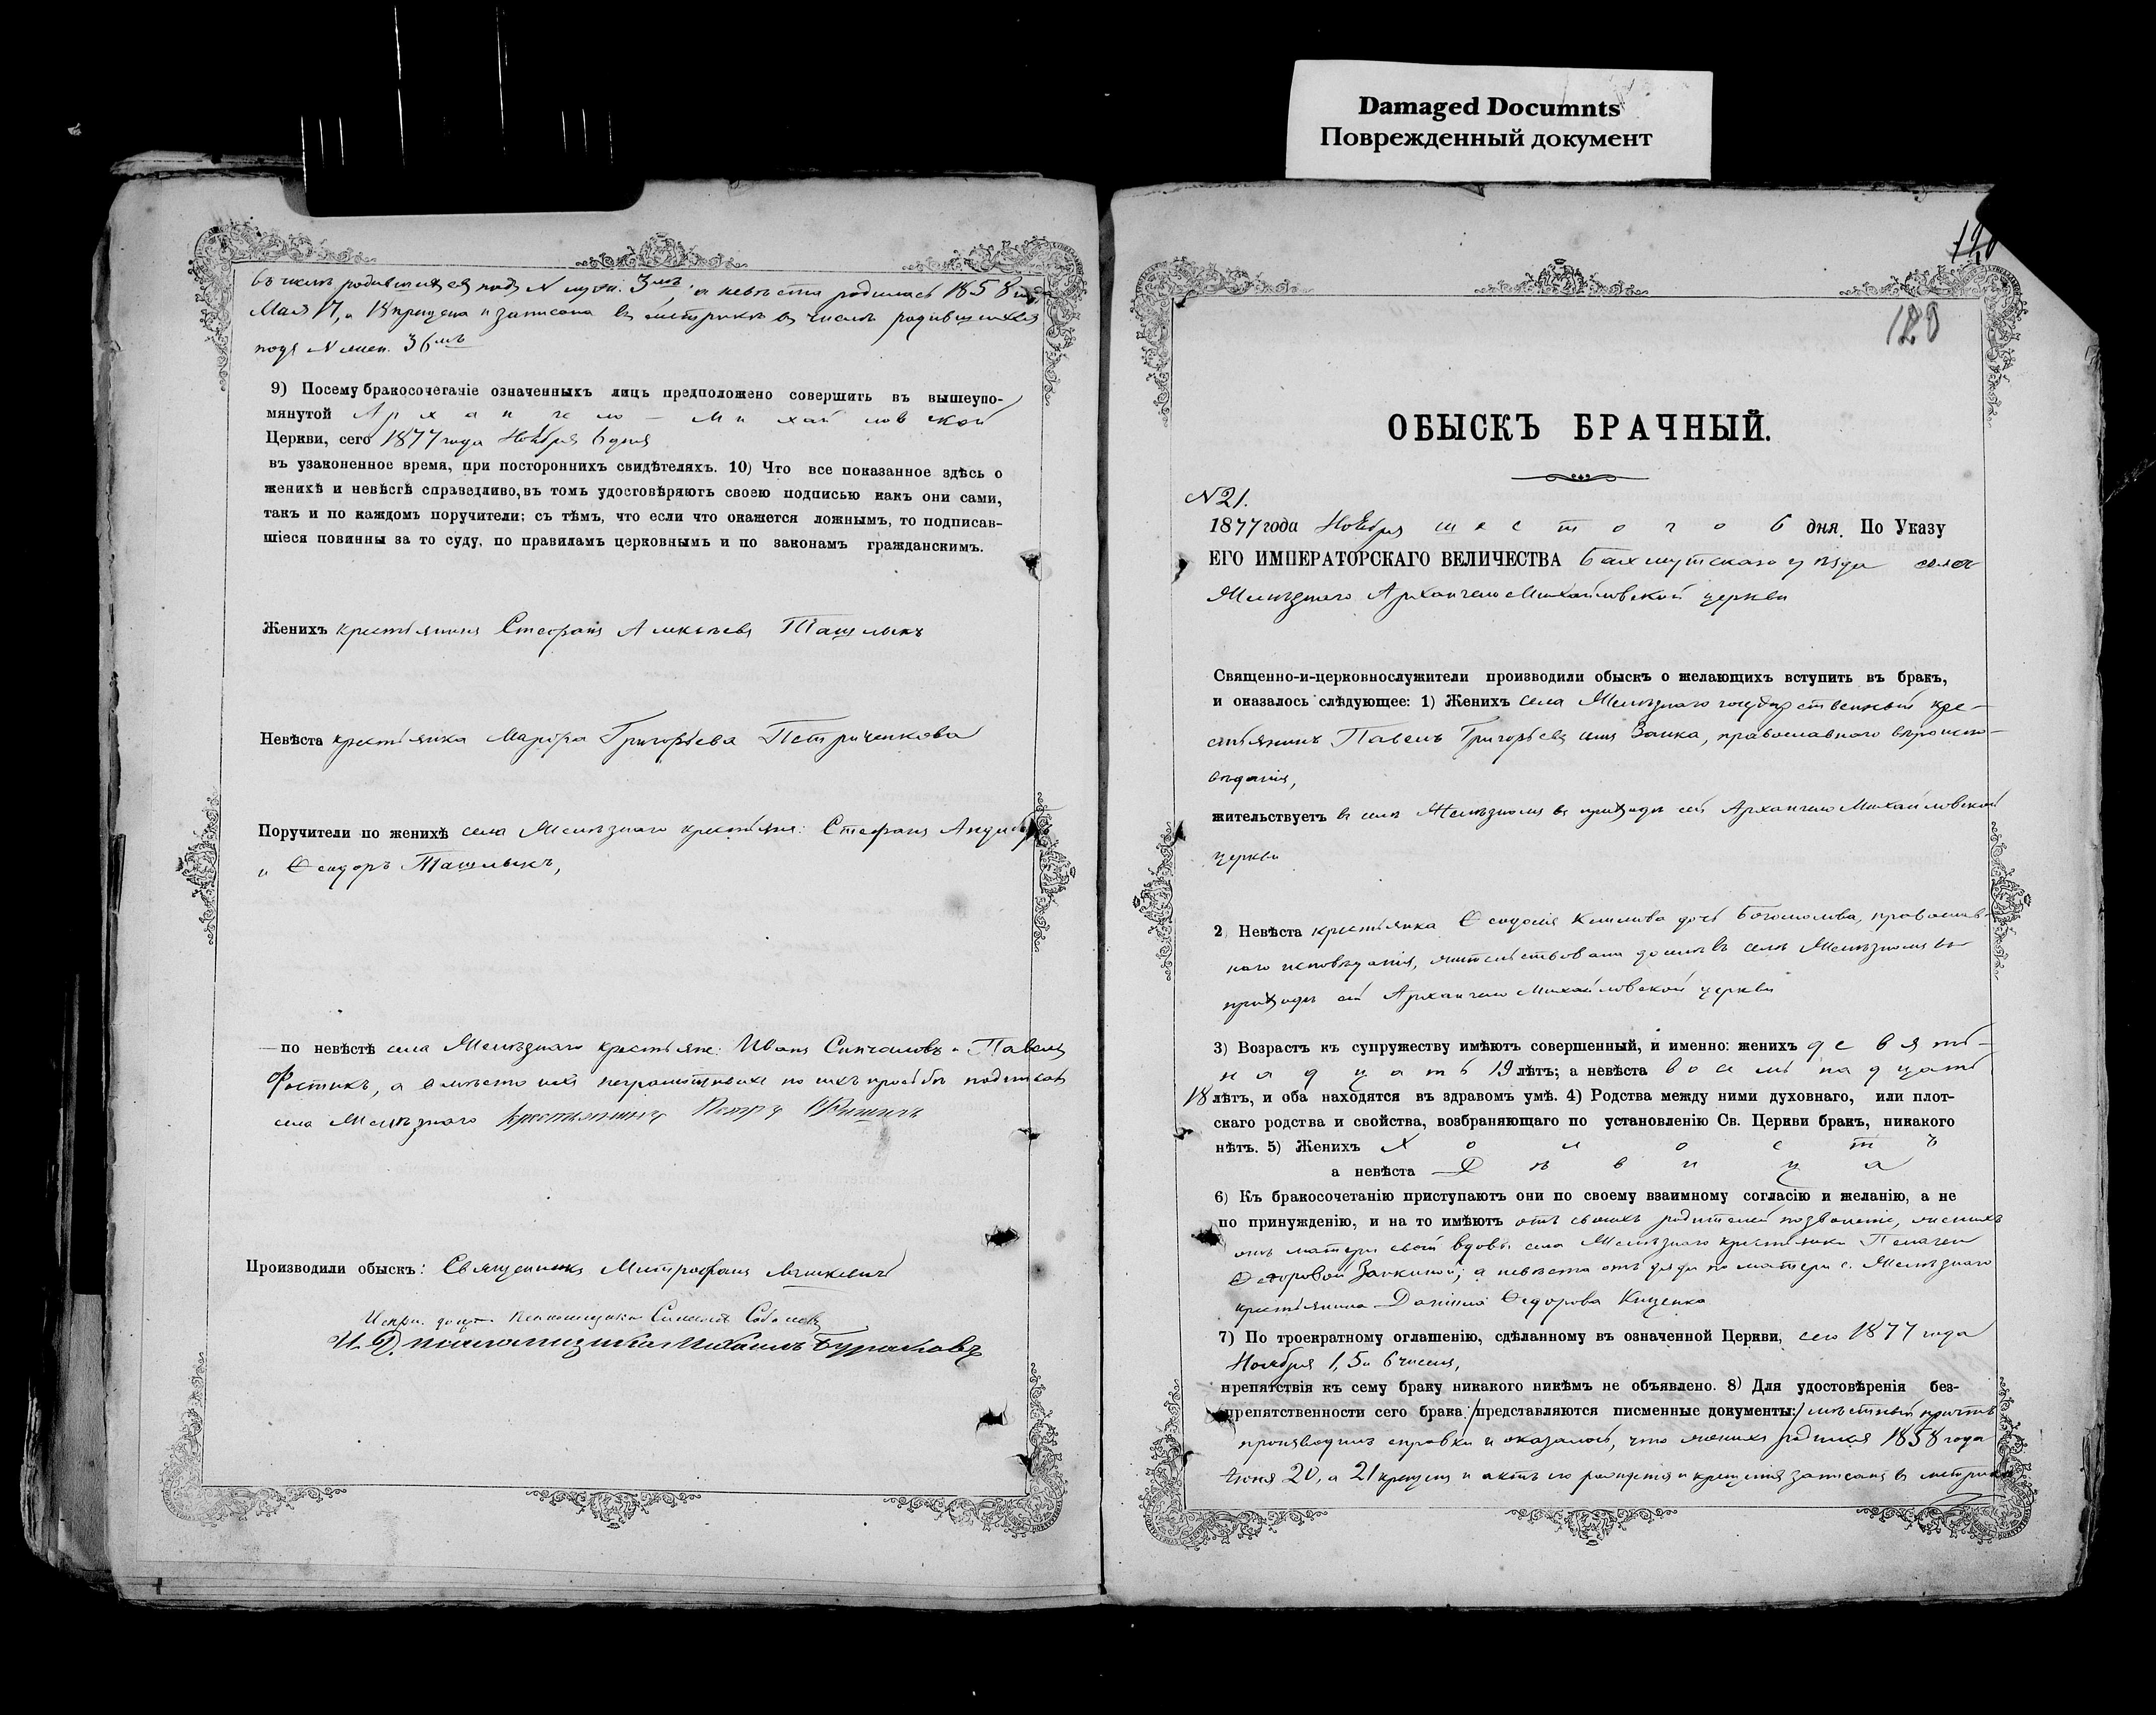 Damaged Documnts
Поврежденный документ
въ числѣ родившихся подъ № муж. 3мъ, а невѣста родилась 1858 года
Мая 17, а 18 крещена и записана въ метрикѣ въ числѣ родившихся
подъ № жен. 36мъ
9) Посему бракосочетаніе означенныхъ лицъ предположено совершить въ вышеупо-
мянутой Архангело-Михайловской
Церкви, сего 1877 года Ноября 6 дня
въ узаконенное время, при постороннихъ свидѣтеляхъ. 10) Что все показанное здѣсь о
женихѣ и невѣстѣ справедливо, въ томъ удостовѣряютъ своею подписью какъ они сами,
такъ и по каждомъ поручители; съ тѣмъ, что если что окажется ложнымъ, то подписав-
шіеся повинны за то суду, по правиламъ церковнымъ и по законамъ гражданскимъ.
Женихъ крестьянинъ Стефанъ Алексѣевъ Ташлыкъ
Невѣста крестьянка Марѳа Григорьева Петриченкова
Поручители по женихѣ села Желѣзнаго крестьяне: Стефанъ
и Ѳеодоръ Ташлыкъ,
по невѣстѣ села Желѣзнаго крестьяне: Иванъ и Павелъ
Фостикъ, а вмѣсто ихъ неграмотныхъ по ихъ просьбѣ подписалъ
села Желѣзнаго крестьянинъ Петръ
Производили обыскъ: Священникъ Митрофанъ
Испр. долж. псаломщика Симеонъ
И. Д. псаломщика Михаилъ Бураковъ
120
120
ОБЫСКЪ БРАЧНЫЙ.
№ 21.
1877 года Ноября шестого 6 дня. По Указу
ЕГО ИМПЕРАТОРСКАГО ВЕЛИЧЕСТВА Бахмутскаго уѣзда села
Желѣзнаго Архангело Михайловской церкви
Священно-и-церковнослужители производили обыскъ о желающихъ вступить въ бракъ,
и оказалось слѣдующее: 1) Женихъ села Желѣзнаго государственный кре-
стьянинъ Павелъ Григорьевъ сынъ Заика, православнаго вѣроиспо-
вѣданія,
жительствуетъ въ селѣ Желѣзномъ въ приходѣ сей Архангело Михайловской
церкви
2 Невѣста крестьянка Ѳеодосія дочь Богомолова, православ-
наго исповѣданія, жительствовала доселѣ въ селѣ Желѣзномъ въ
приходѣ сей Архангело Михайловской церкви
3) Возрастъ къ супружеству имѣютъ совершенный, и именно: женихъ девят-
надцать 19 лѣтъ; а невѣста восемнадцать
18 лѣтъ, и оба находятся въ здравомъ умѣ. 4) Родства между ними духовнаго, или плот-
скаго родства и свойства, возбраняющаго по установленію Св. Церкви бракъ, никакого
нѣтъ. 5) Женихъ Холостъ
а невѣста Дѣвица
6) Къ бракосочетанію приступаютъ они по своему взаимному согласію и желанію, а не
по принужденію, и на то имѣютъ отъ своихъ родителей позволеніе, женихъ
отъ матери своей вдовы села Желѣзнаго крестьянки Пелагеи
Ѳедоровой Заикиной; а невѣста отъ дяди по матери с. Желѣзнаго
крестьянина Даніила Ѳедорова Куценка
7) По троекратному оглашенію, сдѣланному въ означенной Церкви, сего 1877 года
Ноября 1, 5 и 6 чиселъ,
препятствія къ сему браку никакого никѣмъ не объявлено. 8) Для удостовѣренія без-
препятственности сего брака /представляются писменные документы:/ мѣстный причтъ
производилъ справки и оказалось, что женихъ родился 1858 года
Іюня 20, а 21 крещенъ и актъ его рожденія и крещенія записанъ въ метрикѣ